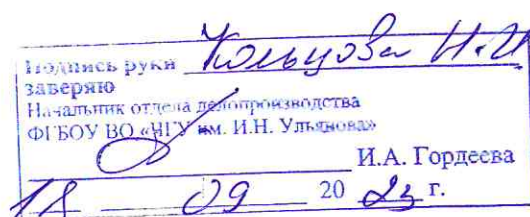 Подпись руки Кольцова Н.И
заверяю
Начальник отдела делопроизводства
ФГБОУ ВО «ЧГУ им. И.Н. Ульянова»
И.А. Гордеева
18 09 20 23 г.